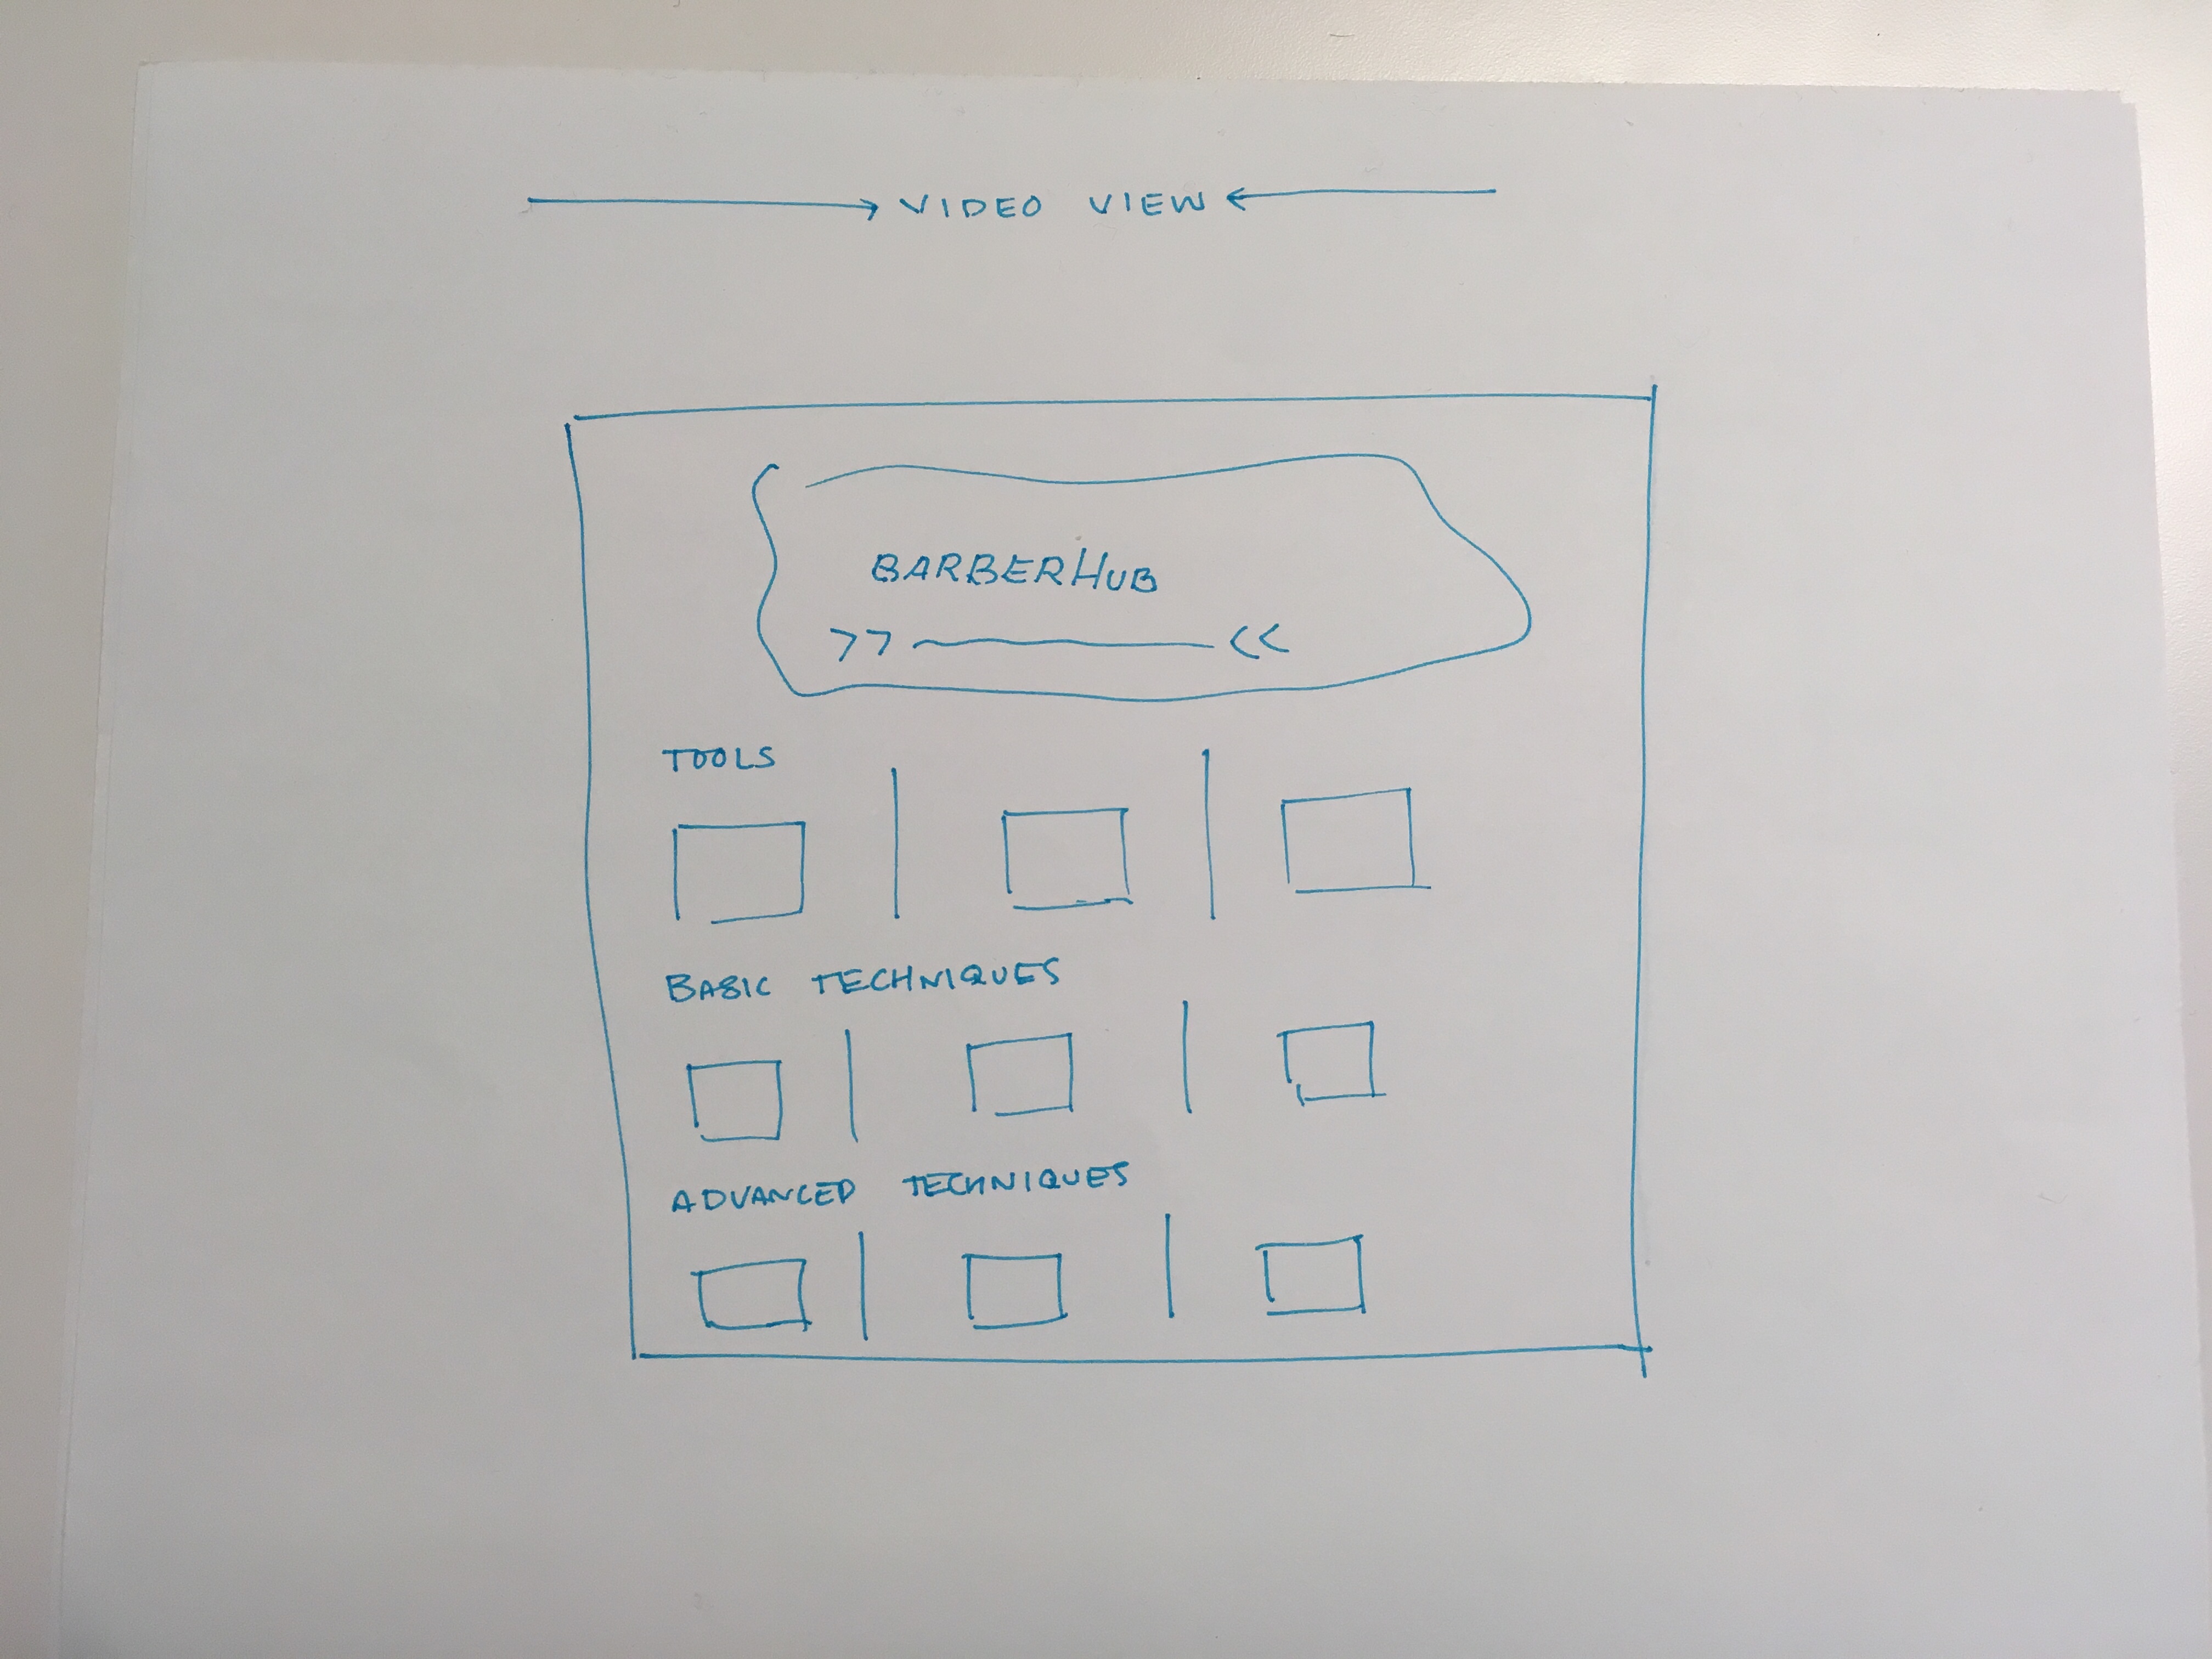 VIDEO VIEW
BARBERHUB
>> <<
TOOLS
BASIC TECHNIQUES
ADVANCED TECHNIQUES